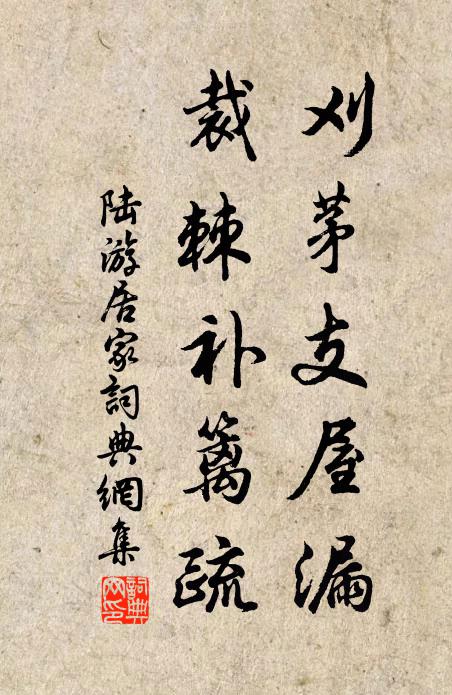 刈茅支屋漏
裁棘补篱疏
陆游居家词典網集
詞典
网印